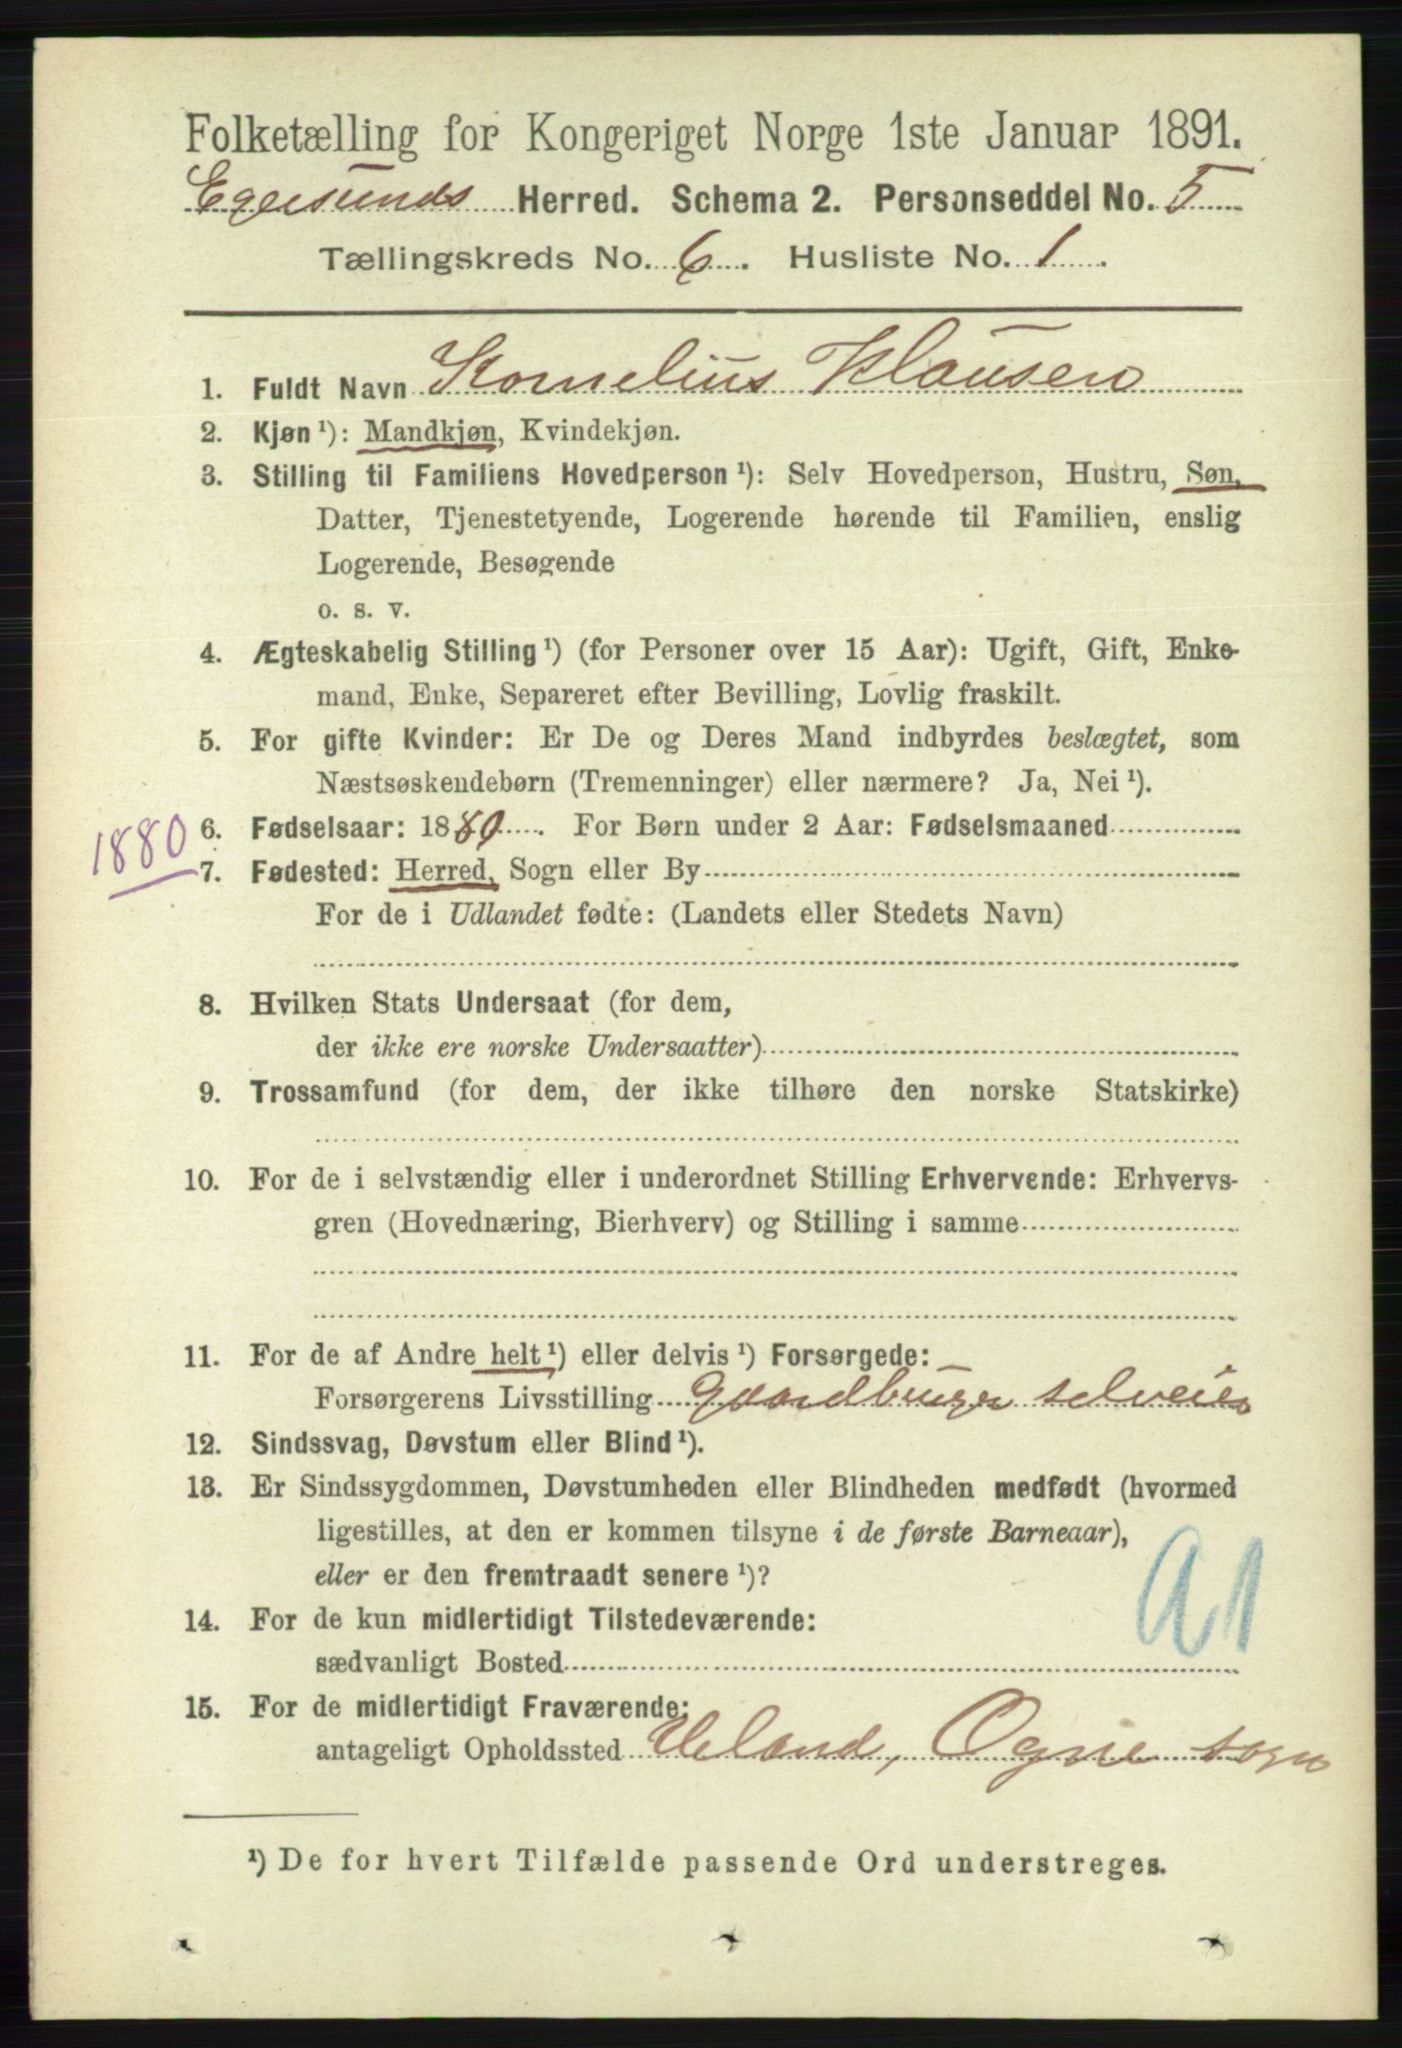 Folketælling for Kongeriget Norge 1ste Januar 1891.
Egersunds Herred. Schema 2. Personseddel No. 5
Tællingskreds No. 6. Husliste No. 1.
1. Fuldt Navn Kornelius Klausen
2. Kjøn ¹): Mandkjøn, Kvindekjøn.
3. Stilling til Familiens Hovedperson ¹): Selv Hovedperson, Hustru, Søn,
Datter, Tjenestetyende, Logerende hørende til Familien, enslig
Logerende, Besøgende
o. s. v.
4. Ægteskabelig Stilling ¹) (for Personer over 15 Aar): Ugift, Gift, Enke-
mand, Enke, Separeret efter Bevilling, Lovlig fraskilt.
5. For gifte Kvinder: Er De og Deres Mand indbyrdes beslægtet, som
Næstsøskendebørn (Tremenninger) eller nærmere? Ja, Nei ¹).
1880
6. Fødselsaar: 1880. For Børn under 2 Aar: Fødselsmaaned
7. Fødested: Herred, Sogn eller By
For de i Udlandet fødte: (Landets eller Stedets Navn)
8. Hvilken Stats Undersaat (for dem,
der ikke ere norske Undersaatter)
9. Trossamfund (for dem, der ikke tilhøre den norske Statskirke)
10. For de i selvstændig eller i underordnet Stilling Erhvervende: Erhvervs-
gren (Hovednæring, Bierhverv) og Stilling i samme
11. For de af Andre helt ¹) eller delvis ¹) Forsørgede:
Forsørgerens Livsstilling Gaardbruger selveier
12. Sindssvag, Døvstum eller Blind ¹).
13. Er Sindssygdommen, Døvstumheden eller Blindheden medfødt (hvormed
ligestilles, at den er kommen tilsyne i de første Barneaar),
eller er den fremtraadt senere ¹)?
A1
14. For de kun midlertidigt Tilstedeværende:
sædvanligt Bosted
15. For de midlertidigt Fraværende:
antageligt Opholdssted Ueland, Ogne sogn
¹) De for hvert Tilfælde passende Ord understreges.